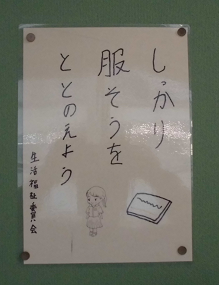 しっかり
服そうを
ととのえよう
生活福祉委員会